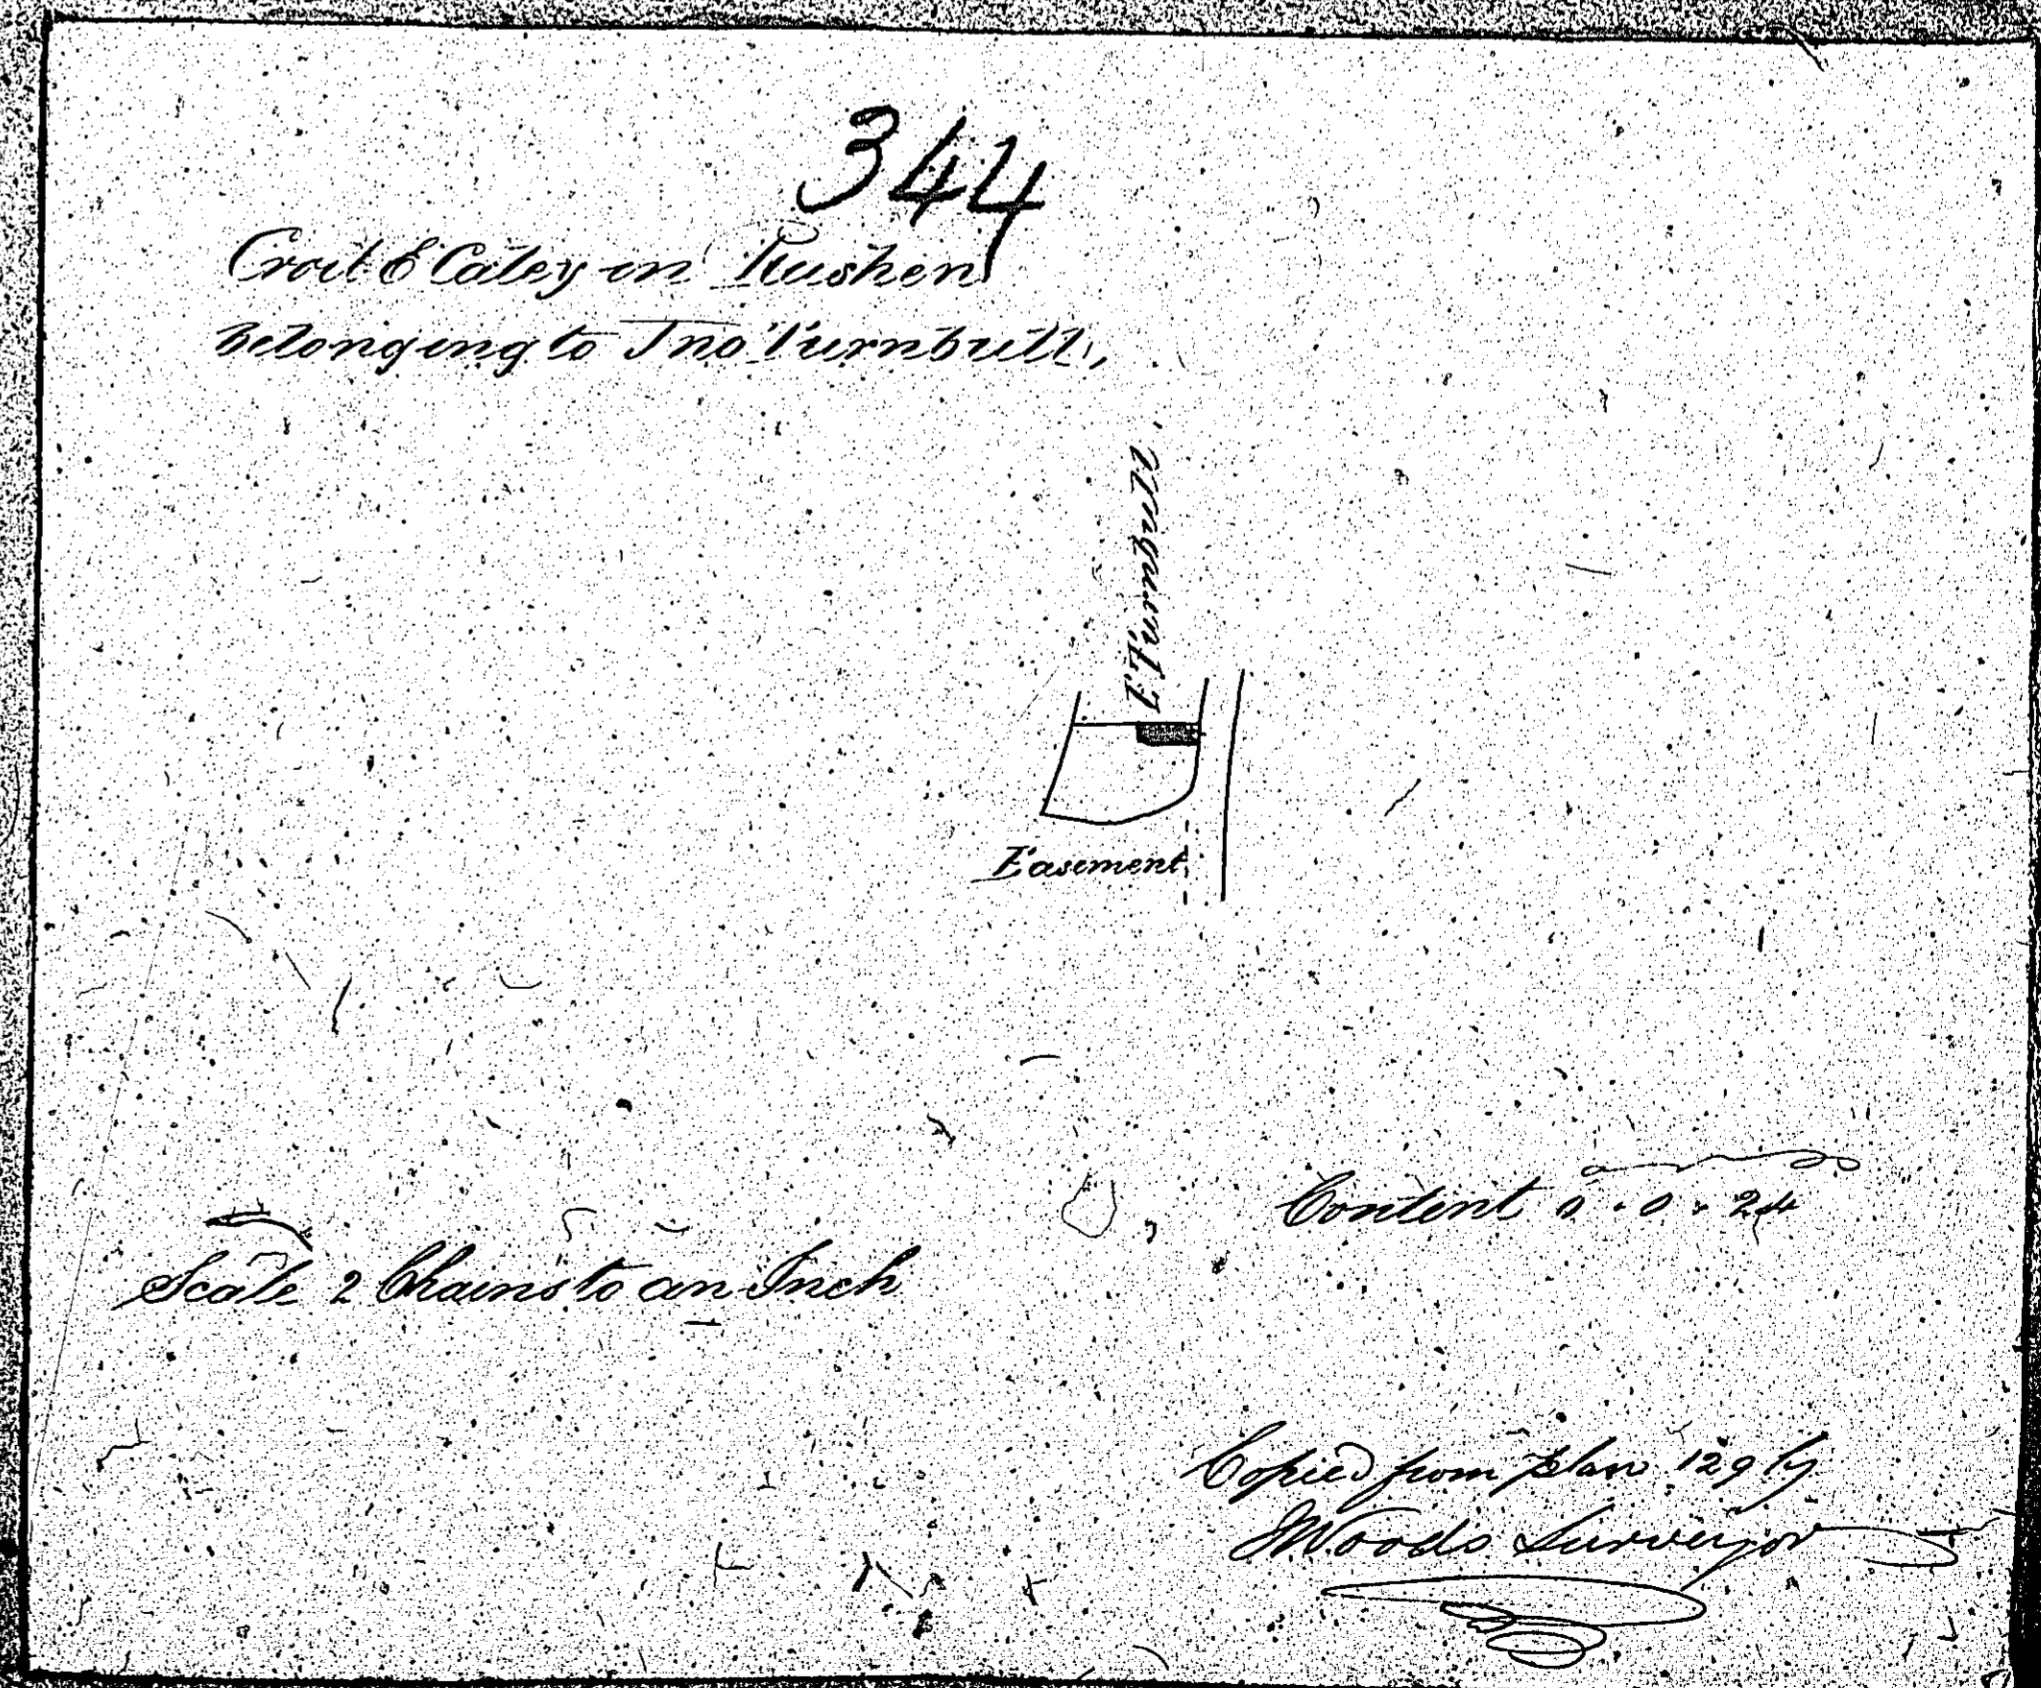 344
Croit E Caley in Rushen
belonging to Jno Turnbull,
T. Turnbull
Easement
Content 0 . 0 . 24
Scale 2 Chains to an Inch
Copied from plan 129 by
JWoods Surveyor